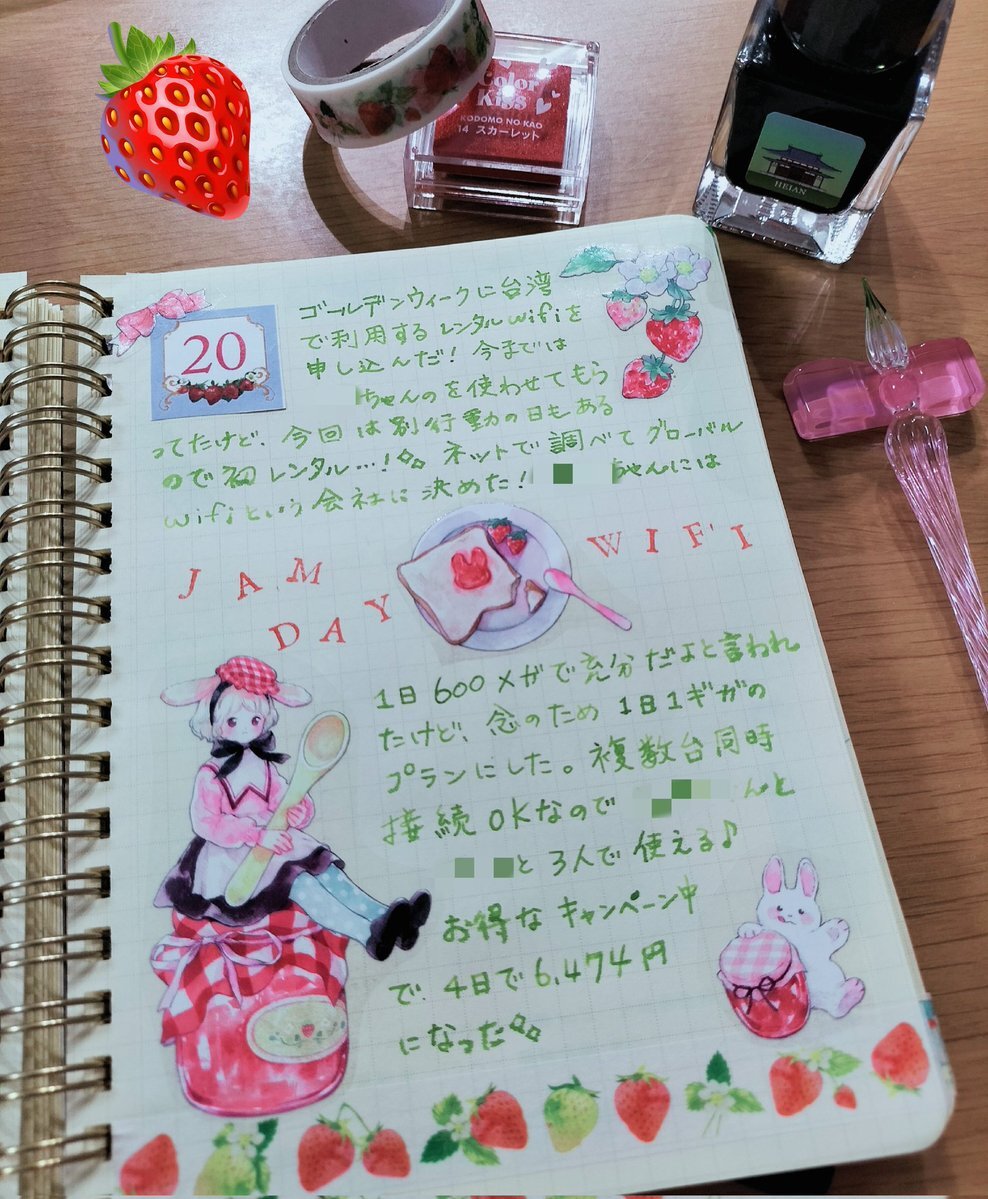 Color
Kiss
KODOMO NO KAO
14 スカーレット
HEIAN
20
ゴールデンウィークに台湾
で利用するレンタルwifiを
申し込んだ！今までは
ちゃんのを使わせてもら
ってたけど、今回は別行動の日もある
ので初レンタル…！ネットで調べてグローバル
wifiという会社に決めた！ ちゃんには
JAM WIFI
DAY
1日600メガで充分だよと言われ
たけど、念のため1日1ギガの
プランにした。複数台同時
接続OKなので んと
と3人で使える♪
お得なキャンペーン中
で、4日で6,474円
になった